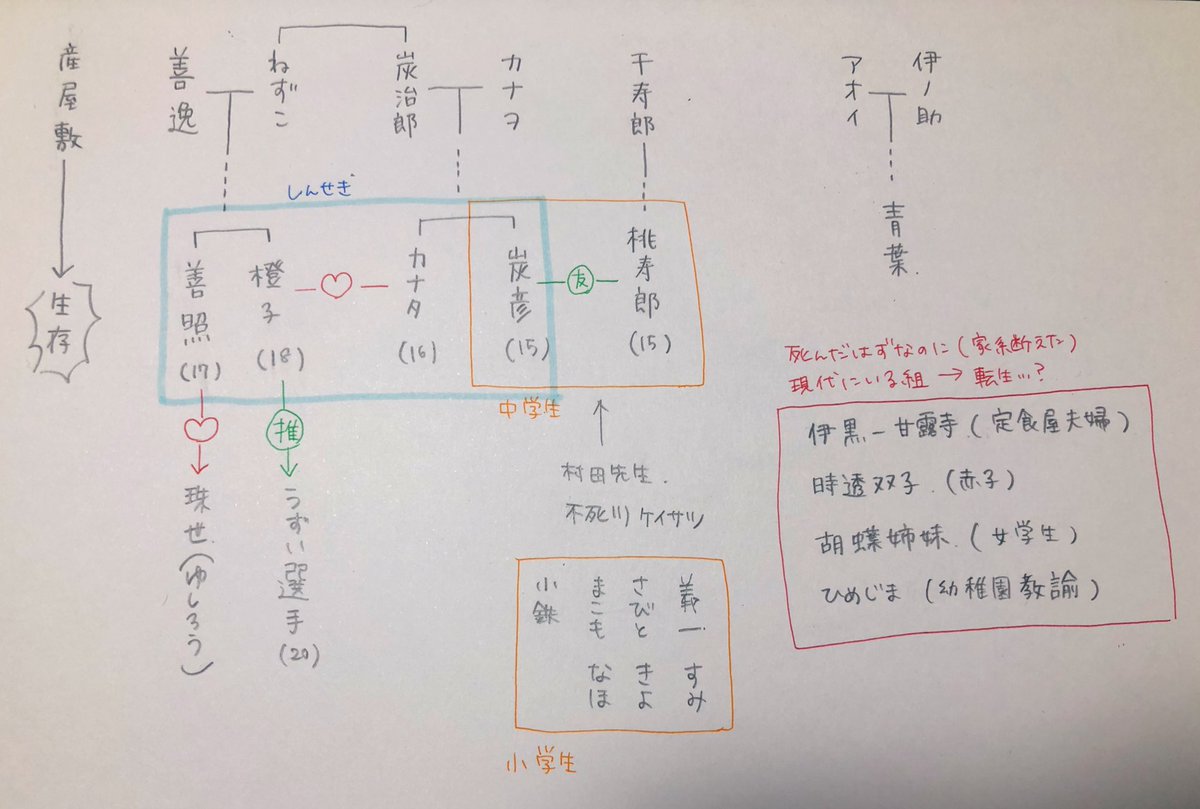 産屋敷
生存
善逸
ねずこ
炭治郎
カナヲ
千寿郎
伊ノ助
アオイ
青葉.
しんせき
善照
(17)
橙子
(18)
カナタ
(16)
炭彦
(15)
友
桃寿郎
(15)
中学生
推
珠世(ゆしろう)
うずい選手
(20)
村田先生.
不死川ケイサツ
義一 すみ
さびと きよ
まこも なほ
小鉄
小学生
死んだはずなのに(家系断えた)
現代にいる組 → 転生...?
伊黒-甘露寺.(定食屋夫婦)
時透双子.(赤子)
胡蝶姉妹.(女学生)
ひめじま(幼稚園教諭)